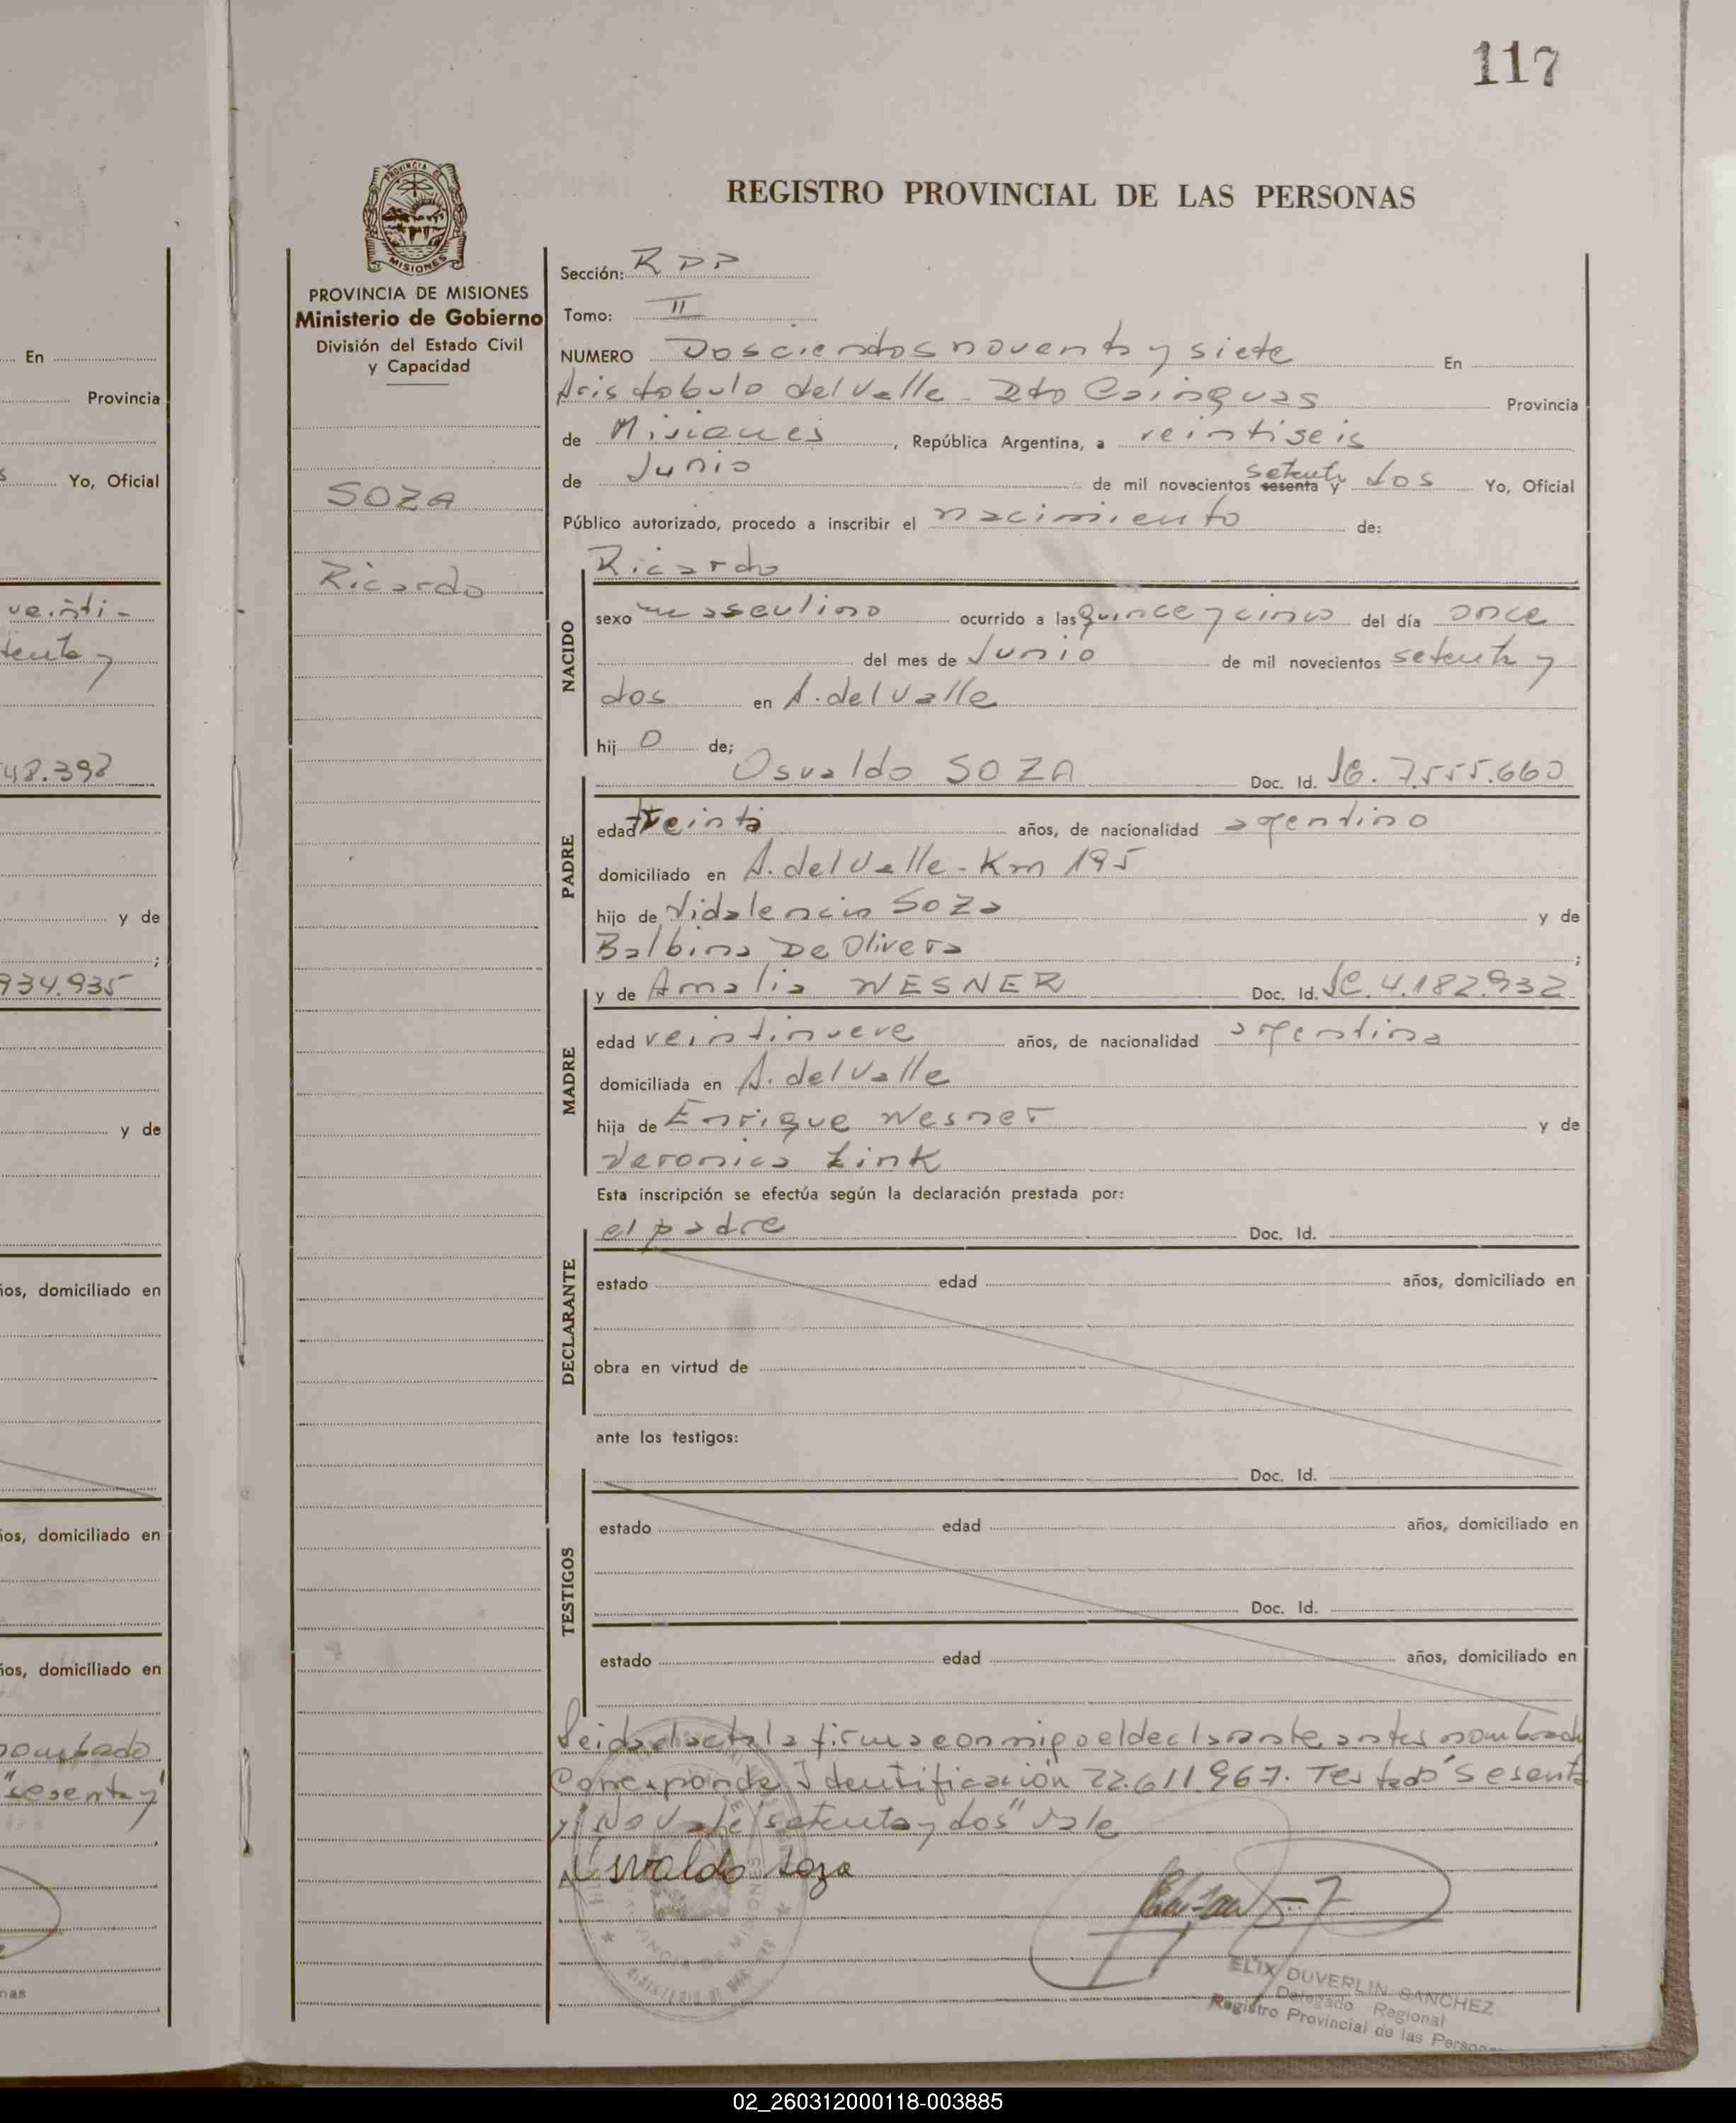 117
PROVINCIA DE MISIONES
Ministerio de Gobierno
División del Estado Civil
y Capacidad
SOZA
Ricardo
REGISTRO PROVINCIAL DE LAS PERSONAS
Sección: RDP
Tomo: II
NUMERO Doscientos noventa y siete En
Aristobulo del Valle - Dto Cainguas Provincia
de Misiones, República Argentina, a veintiseis
de Junio de mil novecientos sesenta y setenta dos Yo, Oficial
Público autorizado, procedo a inscribir el nacimiento de:
Ricardo
NACIDO
sexo masculino ocurrido a las quince y cinco del día once
del mes de Junio de mil novecientos setenta y
dos en A. del Valle
hij o de;
Osvaldo SOZA Doc. Id. 7.555.660
PADRE
edad treinta años, de nacionalidad argentino
domiciliado en A. del Valle - Km 195
hijo de Vidalencio Soza y de
Balbina De Olivera ;
y de Amalia WESNER Doc. Id. 4.182.932
MADRE
edad veintinueve años, de nacionalidad argentina
domiciliada en A. del Valle
hija de Enrique Wesner y de
Veronica Link
Esta inscripción se efectúa según la declaración prestada por:
el padre Doc. Id.
DECLARANTE
estado edad años, domiciliado en
obra en virtud de
ante los testigos:
Doc. Id.
TESTIGOS
estado edad años, domiciliado en
Doc. Id.
estado edad años, domiciliado en
Leida el acta la firma conmigo el declarante antes nombrado
Corresponde Identificación 22.611.967. Testado "sesenta
y" No vale "setenta y dos" vale
Osvaldo Soza
ELIX DUVERLIN SANCHEZ
Delegado Regional
Registro Provincial de las Persona
En
Provincia
Yo, Oficial
veinti-
tenta y
48.398
y de
;
934.935
y de
ños, domiciliado en
ños, domiciliado en
ños, domiciliado en
nombrado
"sesenta y"
nas
02_260312000118-003885